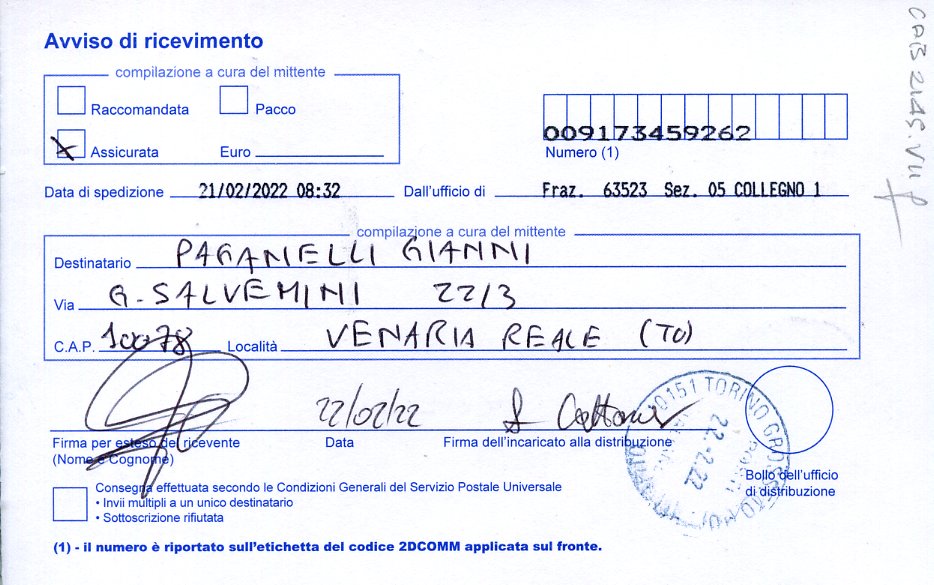 Avviso di ricevimento
compilazione a cura del mittente
Raccomandata Pacco
Assicurata Euro
009173459262
Numero (1)
Data di spedizione 21/02/2022 08:32 Dall'ufficio di Fraz. 63523 Sez. 05 COLLEGNO 1
compilazione a cura del mittente
Destinatario PAGANELLI GIANNI
Via G. SALVEMINI 22/3
C.A.P. 10078 Località VENARIA REALE (TO)
22/02/22
Firma per esteso del ricevente Data Firma dell'incaricato alla distribuzione
(Nome e Cognome)
10151 TORINO
22.2.22
Bollo dell'ufficio
di distribuzione
Consegna effettuata secondo le Condizioni Generali del Servizio Postale Universale
• Invii multipli a un unico destinatario
• Sottoscrizione rifiutata
(1) - il numero è riportato sull'etichetta del codice 2DCOMM applicata sul fronte.